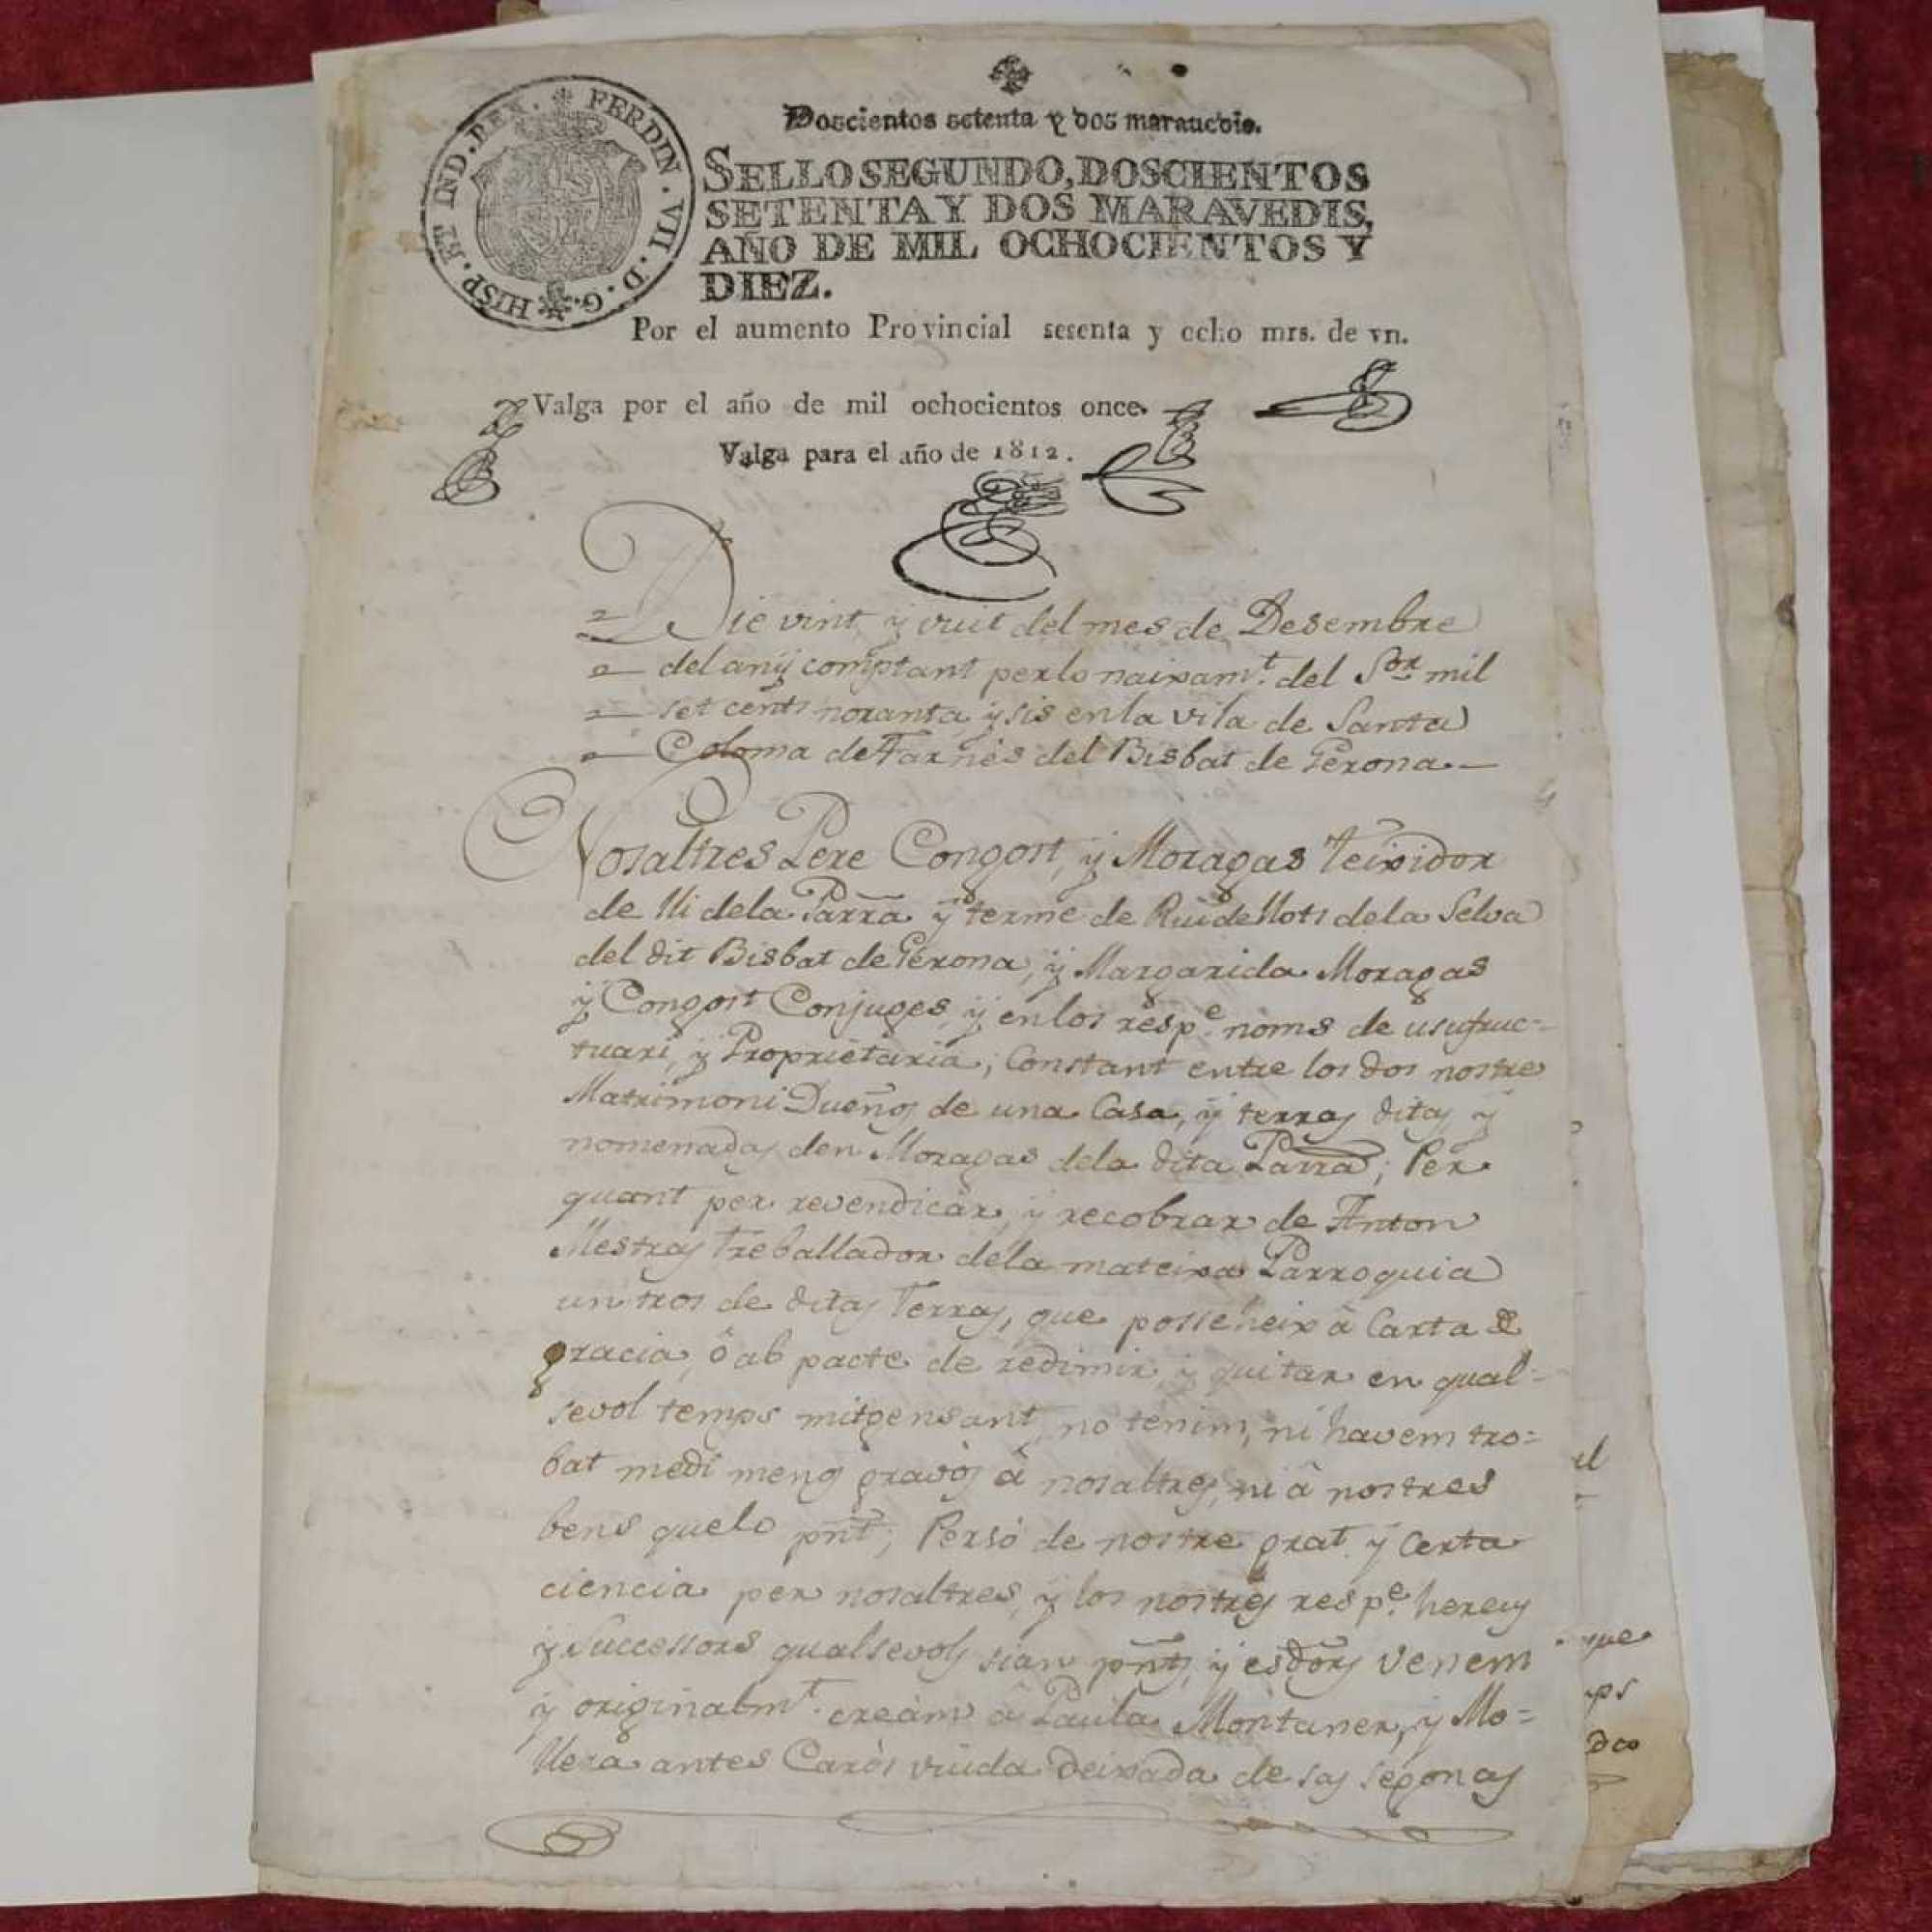 FERDIN. VII. D. G. HISP. ET IND. REX.
Doscientos setenta y dos maravedis.
SELLO SEGUNDO, DOSCIENTOS
SETENTA Y DOS MARAVEDIS,
AÑO DE MIL OCHOCIENTOS Y
DIEZ.
Por el aumento Provincial sesenta y ocho mrs. de vn.
Valga por el año de mil ochocientos once.
Valga para el año de 1812.
Die vint, y vuit del mes de Desembre
del any comptant per lo naixam.t del S.or mil
set cents noranta, y sis en la vila de Santa
Coloma de Farnés del Bisbat de Gerona.
Nosaltres Pere Congost, y Moragas Teixidor
de lli de la Parra y terme de Ruidellots de la Selva
del dit Bisbat de Gerona, y Margarida Moragas
y Congost Conjuges, y en los resp.e noms de usufruc=
tuari, y Proprietaria, Constant entre los dos nostre
Matrimoni Dueños de una Casa, y terras ditas, y
nomenadas den Moragas de la dita Parra; Per
quant per revendicar, y recobrar de Anton
Mestras Treballador de la mateixa Parroquia
un tros de ditas Terras, que posseheix à Carta de
gracia, ò ab pacte de redimir, y quitar en qual=
sevol temps mitgensant, no tenim, ni havem tro=
bat medi menos gravós à nosaltres, ni à nostres
bens que lo pñt; Persó de nostre grat, y Certa
ciencia per nosaltres, y los nostres resp.e hereus
y Successors qualsevols sian pñts, y esdors venem
y originalm.t creàm à Paula Montaner, y Mo=
llera antes Carós viuda deixada de sas segonas
el
que
mps
dco